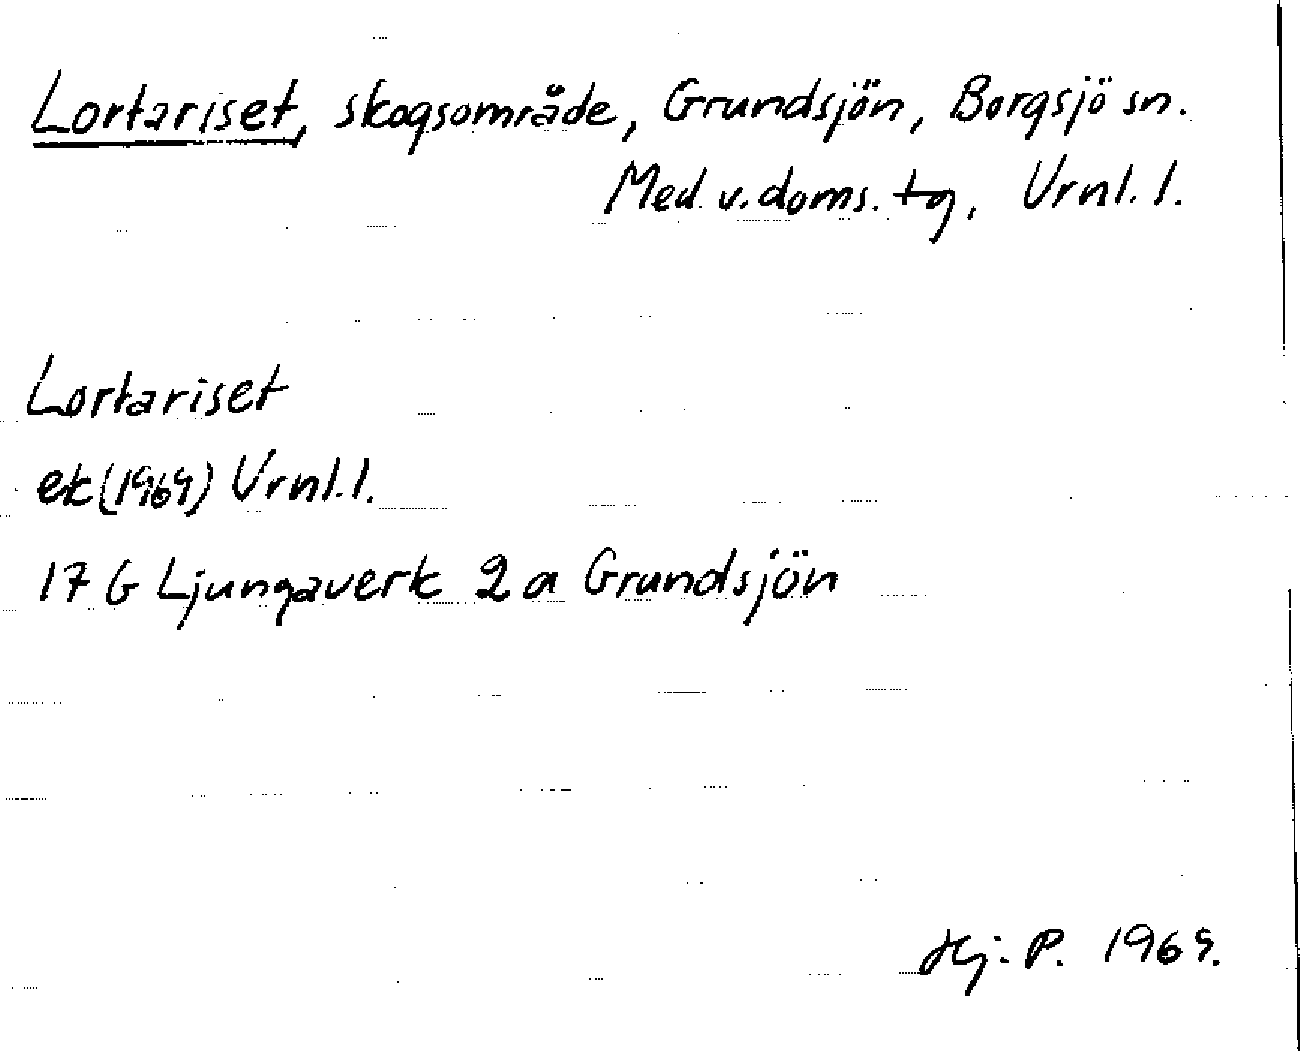 Lortariset, skogsområde, Grundsjön, Borgsjö sn.
Med. v. doms. tg, Vrnl. l.
Lortariset
ek (1969) Vrnl. l.
17 G Ljungaverk 2 a Grundsjön
Hj. P. 1969.